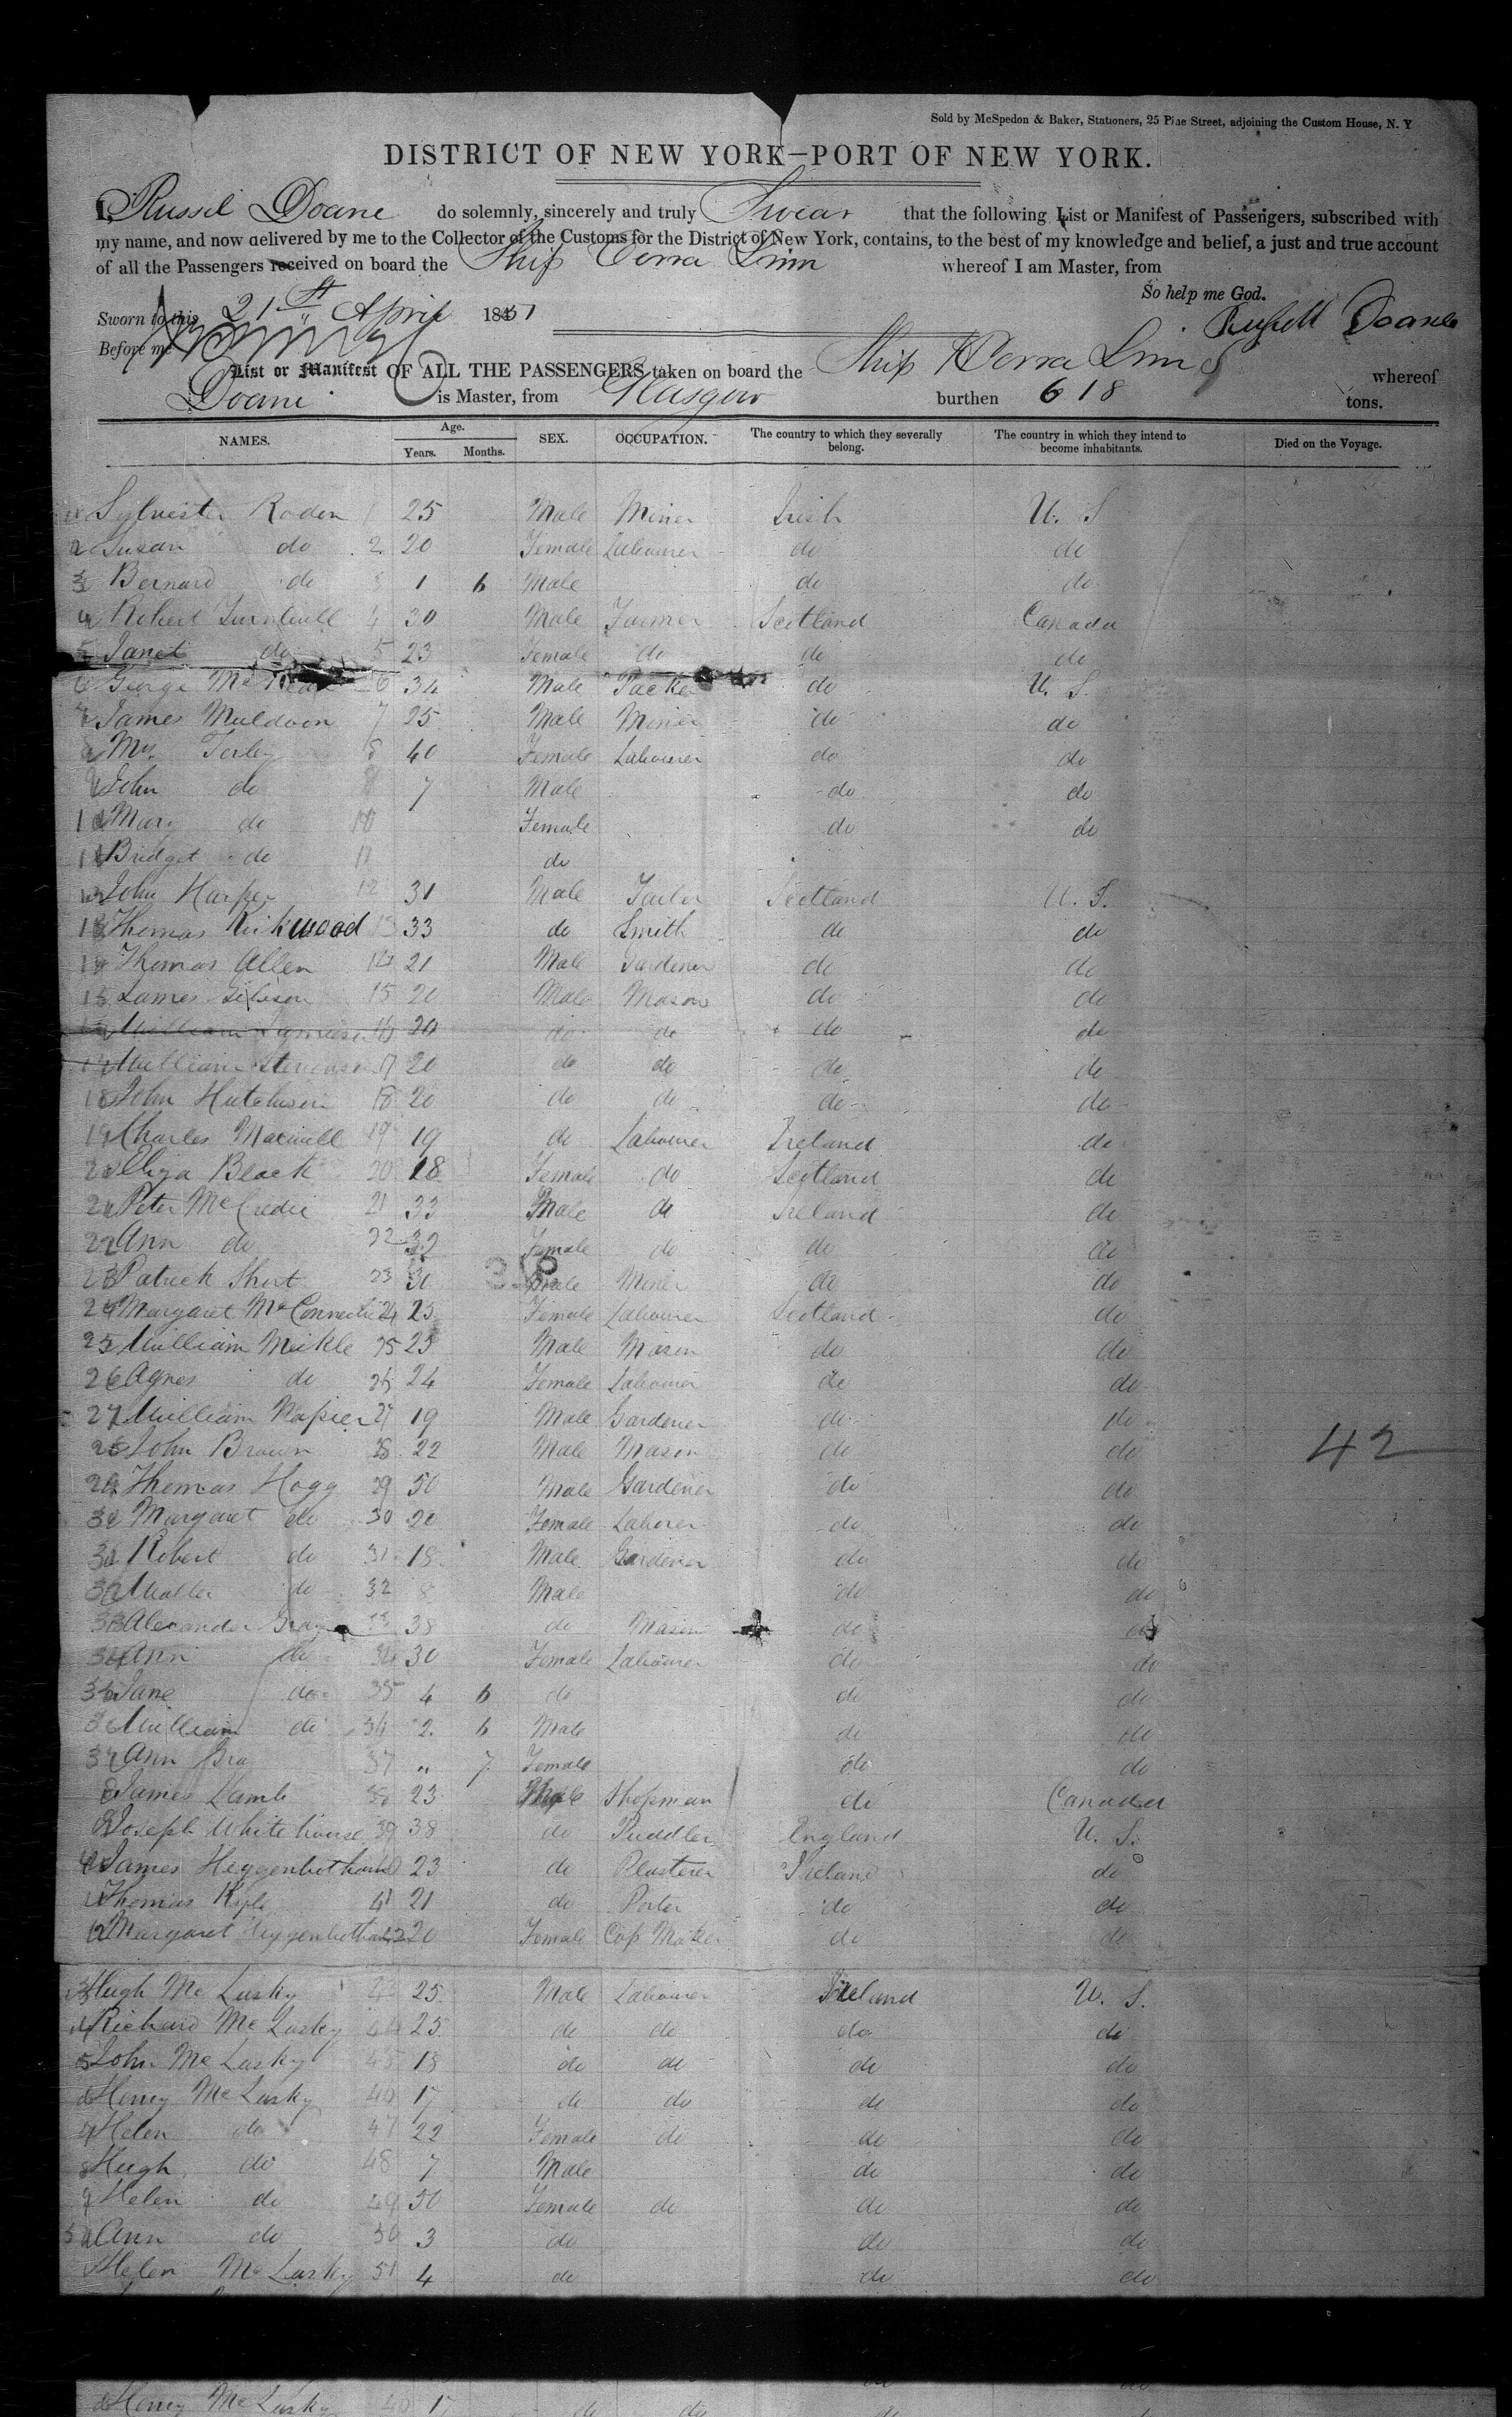 Sold by McSpedon & Baker, Stationers, 25 Pine Street, adjoining the Custom House, N. Y
DISTRICT OF NEW YORK—PORT OF NEW YORK.
I, Russil Doane do solemnly, sincerely and truly Swear that the following List or Manifest of Passengers, subscribed with
my name, and now delivered by me to the Collector of the Customs for the District of New York, contains, to the best of my knowledge and belief, a just and true account
of all the Passengers received on board the Ship whereof I am Master, from
So help me God.
Sworn to this 21st April 1851 Russell Doane
Before me
List or Manifest OF ALL THE PASSENGERS taken on board the Ship whereof
Doane is Master, from Glasgow burthen 618 tons.
NAMES. Age. Years. Months. SEX. OCCUPATION. The country to which they severally belong. The country in which they intend to become inhabitants. Died on the Voyage.
1 Sylvester Roden 1 25 Male Miner Irish U. S
2 Susan do 2 20 Female Labourer do do
3 Bernard do 3 1 6 Male do do
4 Robert Turnbull 4 30 Male Farmer Scotland Canada
5 Janet do 5 23 Female do do do
6 George 6 34 Male Packer do U. S.
7 James Muldoon 7 25 Male Miner do do
8 Mrs. 8 40 Female Labourer do do
9 John do 7 Male do do
10 Mary do 10 Female do do
11 Bridget do 11 do
12 John Harper 12 31 Male Tailor Scotland U. S.
13 Thomas Kirkwood 13 33 do Smith do do
14 Thomas Allen 14 21 Male Gardener do do
15 James Gibson 15 20 Male Mason do do
16 William 16 20 do do do do
17 William Stevenson 17 20 do do do do
18 John Hutchison 18 20 do do do do
19 Charles Maxwell 19 19 do Labourer Ireland do
20 Eliza Black 20 18 Female do Scotland do
21 Peter McCredie 21 33 Male do Ireland do
22 Ann do 22 32 Female do do do
23 Patrick Short 23 30 Male Miner do do
24 Margaret McConnechie 24 23 Female Labourer Scotland do
25 William Meikle 25 23 Male Mason do do
26 Agnes do 26 24 Female Labourer do do
27 William Napier 27 19 Male Gardener do do
28 John Brown 28 22 Male Mason do do 42
29 Thomas Hogg 29 50 Male Gardener do do
30 Margaret do 30 20 Female Laborer do do
31 Robert do 31 18 Male Gardener do do
32 Walter do 32 8 Male do do
33 Alexander Gray 33 38 do Mason do do
34 Ann do 34 30 Female Labourer do do
35 Jane do 35 4 6 do do do
36 William do 36 2 6 Male do do
37 Ann Gray 37 " 7 Female do do
8 James Lamb 38 23 Male Shopman do Canada
9 Joseph Whitehouse 39 38 do Puddler England U. S.
40 James Heggenbotham 40 23 do Plasterer Ireland do
1 Thomas Kyle 41 21 do Porter do do
2 Margaret Heggenbotham 42 20 Female Cap Maker do do
3 Hugh McLusky 43 25 Male Labourer Ireland U. S.
4 Richard McLusky 44 25 do do do do
5 John McLusky 45 18 do do do do
6 Henry McLusky 46 17 do do do do
7 Helen do 47 22 Female do do do
8 Hugh do 48 7 Male do do
9 Helen do 49 50 Female do do do
50 Ann do 50 3 do do do
Helen McLusky 51 4 do do do
Henry McLusky do do